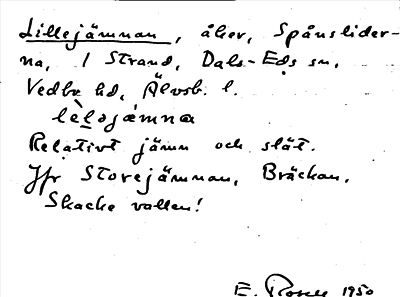 Lillejämnan, åker, Spånslider-
na, 1 Strand, Dals-Eds sn,
Vedbo hd, Älvsb. l.
lèlajamna
Relativt jämn och slät.
Jfr Storejämnan, Bräckan,
Skacke vallen!
E. Rosell 1950